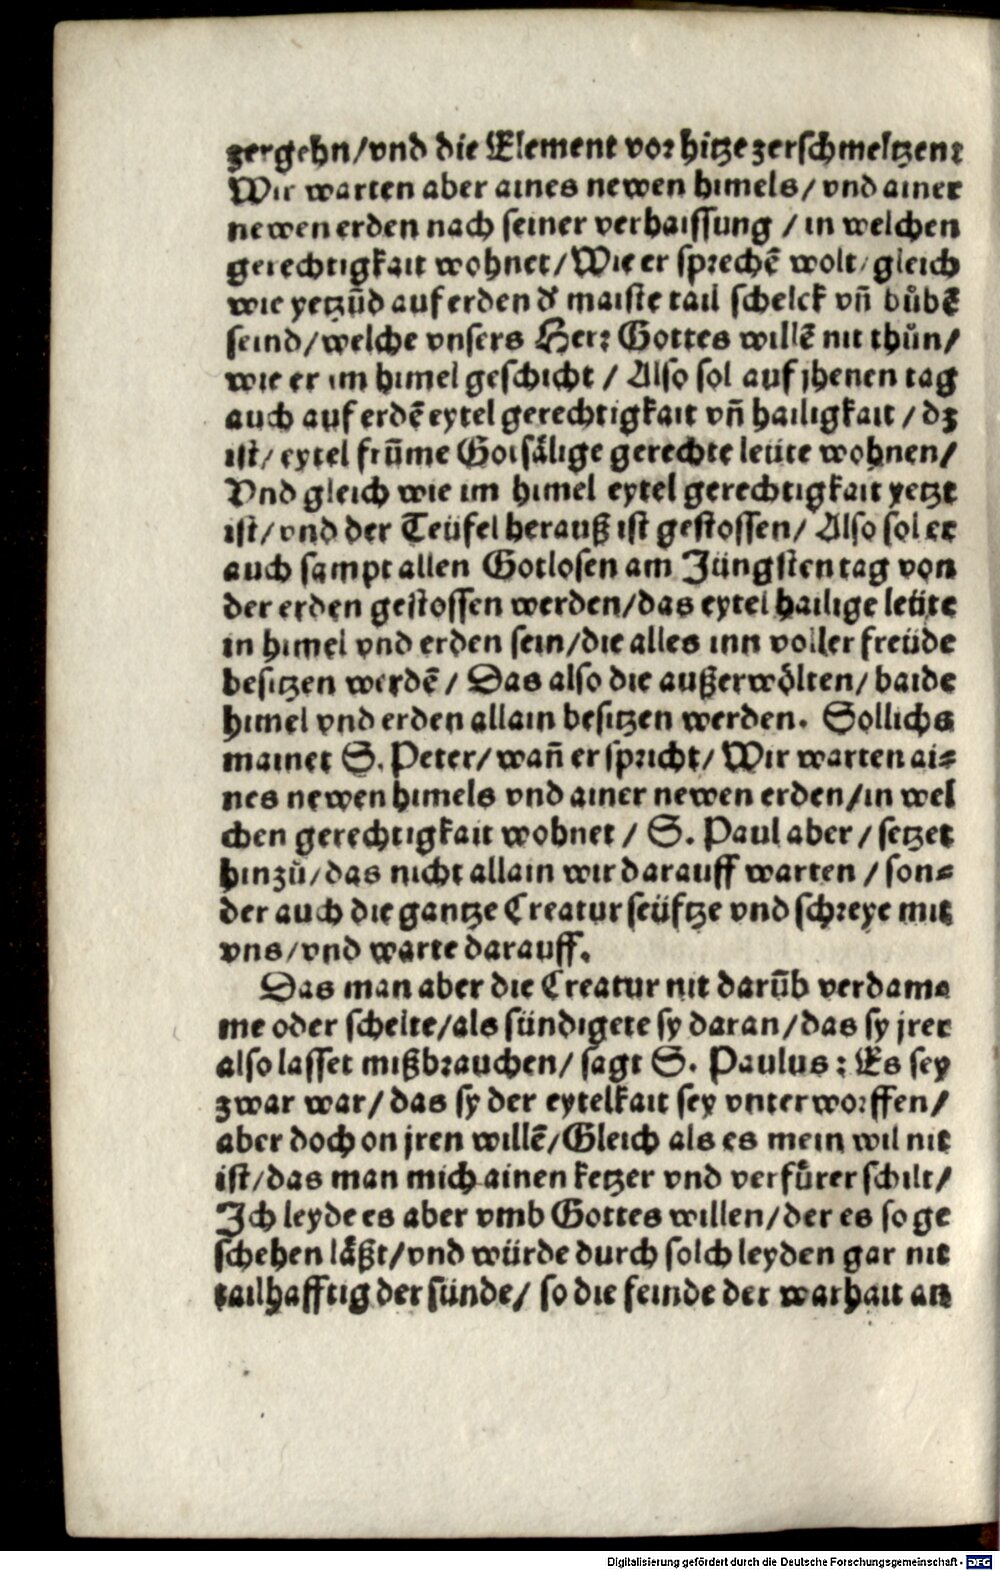 zergehn/vnd die Element vor hitze zerschmeltzen:
Wir warten aber aines newen himels/ vnd ainer
newen erden nach seiner verhaissung / in welchen
gerechtigkait wohnet/ Wie er sprechẽ wolt/ gleich
wie yetzũd auf erden dˀ maiste tail schelck vñ bůbẽ
seind/ welche vnsers Herr Gottes willẽ nit thůn/
wie er im himel geschicht / Also sol auf jhenen tag
auch auf erdẽ eytel gerechtigkait vñ hailigkait / dz
ist/ eytel frũme Gotsålige gerechte leüte wohnen/
Vnd gleich wie im himel eytel gerechtigkait yetzt
ist/ vnd der Teüfel herauß ist gestossen/ Also sol er
auch sampt allen Gotlosen am Jüngsten tag von
der erden gestossen werden/das eytel hailige leüte
in himel vnd erden sein/die alles inn voller freüde
besitzen werdẽ / Das also die außerwölten/ baide
himel vnd erden allain besitzen werden. Sollichs
mainet S. Peter/ wañ er spricht/ Wir warten ai⸗
nes newen himels vnd ainer newen erden/in wel
chen gerechtigkait wohnet / S. Paul aber / setzet
hinzů/das nicht allain wir darauff warten / son⸗
der auch die gantze Creatur seüftze vnd schreye mit
vns/vnd warte darauff.
Das man aber die Creatur nit darũb verdam⸗
me oder schelte/als sündigete sy daran/das sy jrer
also lasset mißbrauchen/ sagt S. Paulus: Es sey
zwar war/ das sy der eytelkait sey vnterworffen/
aber doch on jren willẽ/Gleich als es mein wil nit
ist/das man mich ainen ketzer vnd verfůrer schilt/
Ich leyde es aber vmb Gottes willen/der es so ge
schehen låßt/vnd würde durch solch leyden gar nit
tailhafftig der sünde/ so die feinde der warhait an
Digitalisierung gefördert durch die Deutsche Forschungsgemeinschaft - DFG